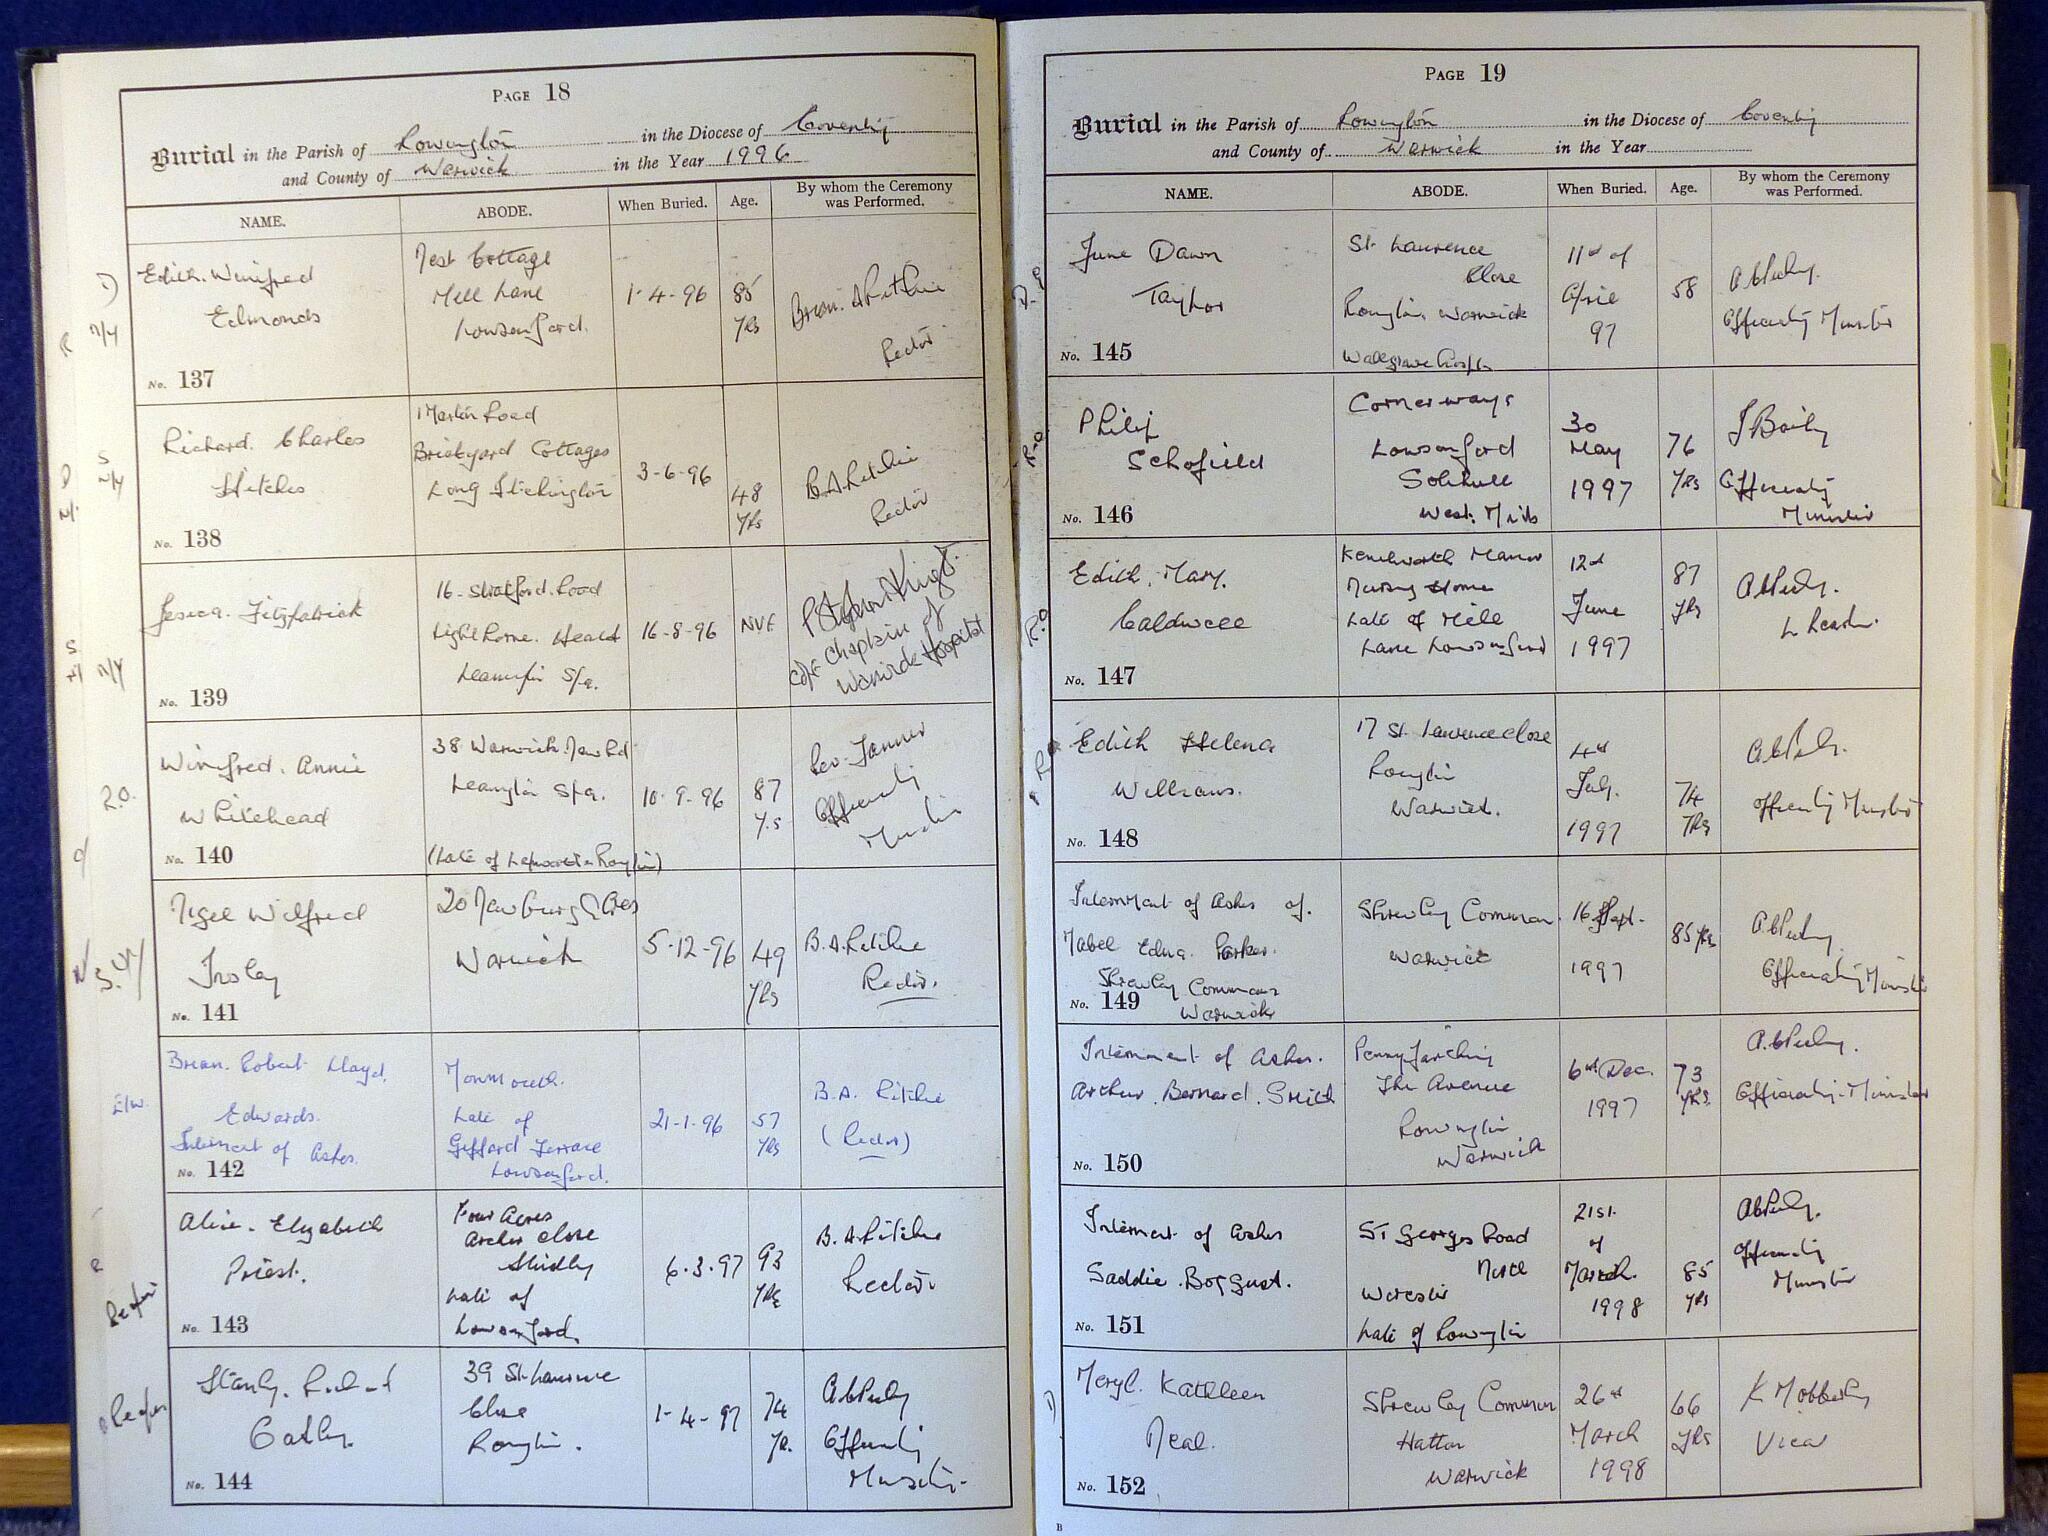 PAGE 18
Burial in the Parish of Rowington in the Diocese of Coventry
and County of Warwick in the Year 1996
NAME. ABODE. When Buried. Age. By whom the Ceremony was Performed.
Edith. Winifred
Edmonds
No. 137
Cottage
Mill Lane
Lowsonford.
1-4-96
85
yrs
Brian. A Ritchie
Rector
Richard. Charles
Hitches
No. 138
Road
Brickyard Cottages
Long Itchington
3-6-96
48
yrs
B.A. Ritchie
Rector
Jesica. Fitzpatrick
No. 139
16. Stratford. Road
Lighthorne. Heath
Leamington Spa.
16-8-96
Chaplain of
Warwick Hospital
Winifred. Annie
Whitehead
No. 140
38 Warwick New Rd
Leamington Spa.
(Late of
10-9-96
87
yrs
Rev. Tanner
Officiating
Minister
Nigel Wilfred
Insley
No. 141
20
Warwick
5-12-96
49
yrs
B.A. Ritchie
Rector.
Brian. Robert Lloyd.
Edwards.
Interment of Ashes.
No. 142
Monmouth.
Late of
Gifford Terrace
Lowsonford.
21-1-96
57
yrs
B.A. Ritchie
(Rector)
Alice. Elizabeth
Priest.
No. 143
Four Acres
Archer Close
Studley
Late of
Lowsonford.
6.3.97
93
yrs
B.A. Ritchie
Rector.
Stanley. Richard
No. 144
39 St. Laurence
Close
Rowington.
1-4-97
74
yr.
Officiating
Minister.
PAGE 19
Burial in the Parish of Rowington in the Diocese of Coventry
and County of Warwick in the Year
NAME. ABODE. When Buried. Age. By whom the Ceremony was Performed.
June Dawn
Taylor
No. 145
St. Laurence
Close
Rowington. Warwick
Walsgrave Hosp
11th of
April
97
58
Officiating Minister
Philip
Schofield
No. 146
Cornerways
Lowsonford
Solihull
West. Mids
30
May
1997
76
yrs
J Baily
Officiating
Minister
Edith. Mary.
Caldwell
No. 147
Kenilworth Manor
Nursing Home
Late of Mill
Lane Lowsonford
12th
June
1997
87
yrs
Edith Helena
Williams.
No. 148
17 St. Laurence Close
Rowington
Warwick.
4th
July.
1997
74
yrs
Officiating Minister
Interment of Ashes of.
Mabel Edna. Parker.
Shrewley Common
Warwick
No. 149
Shrewley Common
Warwick
16 Sept.
1997
85 yrs
Officiating Minister
Interment of Ashes.
Arthur. Bernard. Smith
No. 150
Penny Farthing
The Avenue
Rowington
Warwick
6th Dec.
1997
73
yrs.
Officiating. Minister
Interment of Ashes
Saddie. Boggust.
No. 151
St Georges Road
North
Worcester
Late of Rowington
21st.
of
March.
1998
85
yrs
Officiating
Minister
Meryl. Kathleen
Neal.
No. 152
Shrewley Common
Hatton
Warwick
26th
March
1998
66
yrs
K Mobberley
Vicar
B